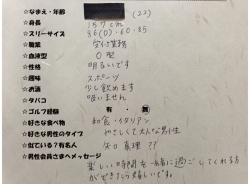 ☆なまえ・年齢 (22)
☆身長 157cm
☆スリーサイズ 86(D)・60・85
☆職業
☆血液型 O型
☆性格 明るいです
☆趣味 スポーツ
☆お酒 少し飲めます
☆タバコ 吸いません
☆ゴルフ経験 有・無
☆好きな食べ物 和食・イタリアン
☆好きな男性のタイプ やさしくて大人な男性
☆似ている?有名人 矢口真理??
☆男性会員さまへメッセージ
楽しい時間を一緒に過ごしてくれる方
がいたら嬉しいです。